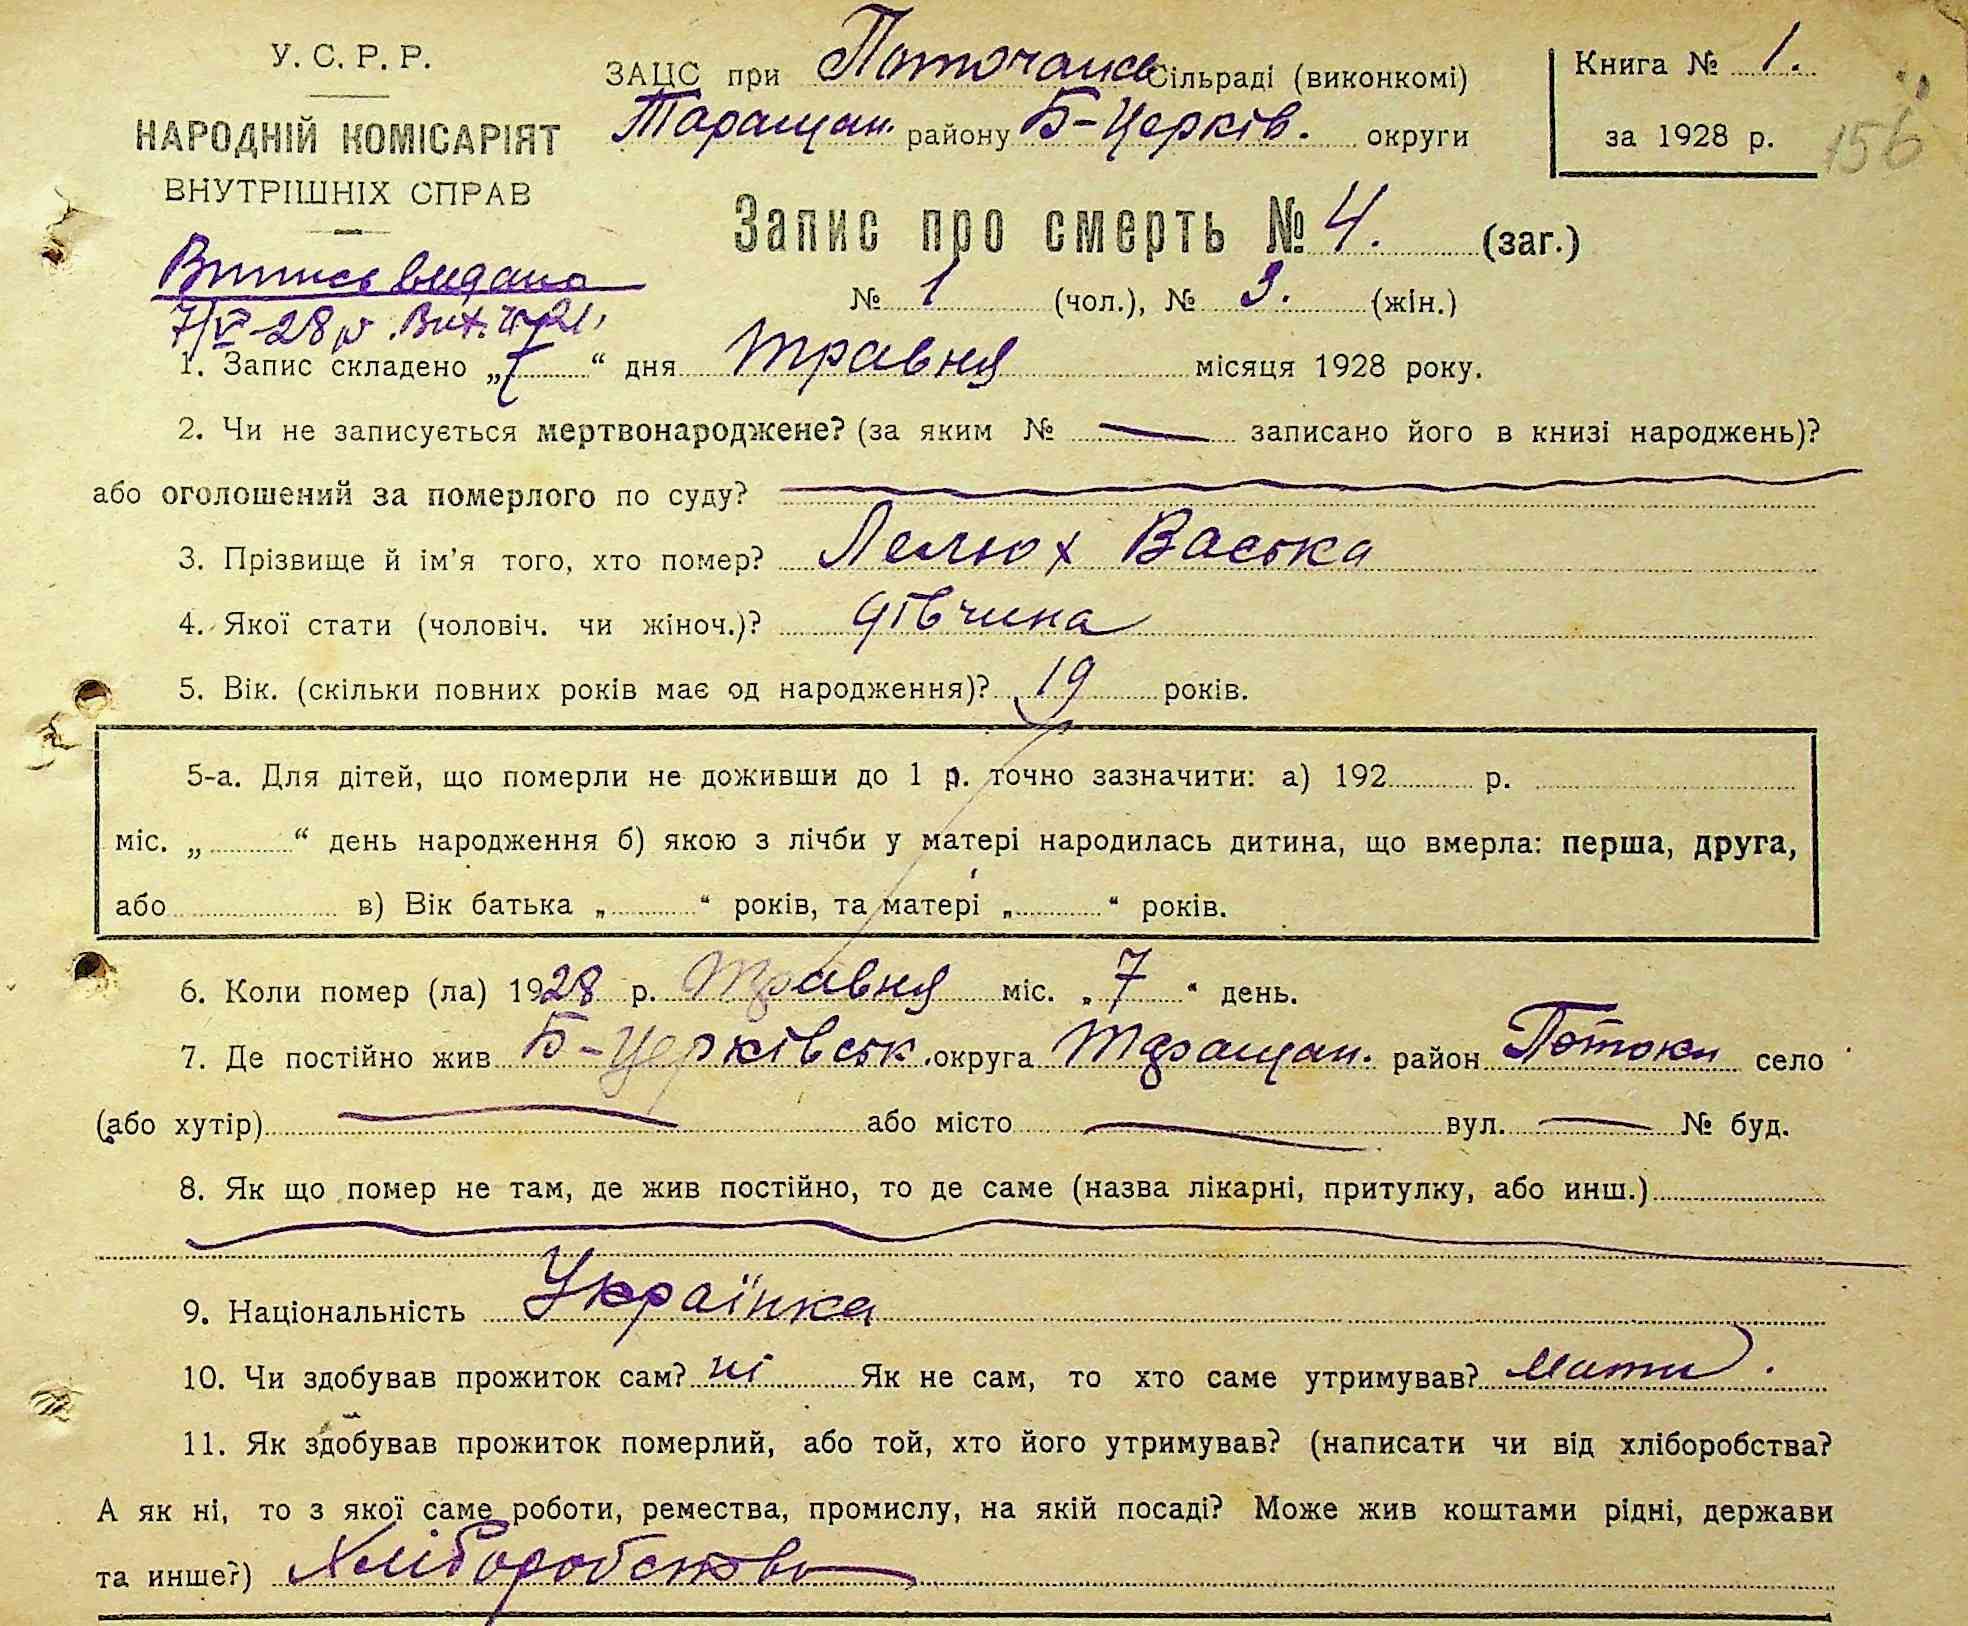 У. С. Р. Р.
НАРОДНІЙ КОМІСАРІЯТ
ВНУТРІШНІХ СПРАВ
ЗАЦС при Поточанск Сільраді (виконкомі)
Таращан. району Б-Церків. округи
Книга № 1.
за 1928 р.
156
Запис про смерть № 4. (заг.)
№ 1 (чол.), № 3. (жін.)
Витись видано
7/V-28 р. Вих. № 21.
1. Запис складено „7“ дня травня місяця 1928 року.
2. Чи не записується мертвонароджене? (за яким № — записано його в книзі народжень)?
або оголошений за померлого по суду?
3. Прізвище й ім'я того, хто помер? Лелюх Васька
4. Якої стати (чоловіч. чи жіноч.)? дівчина
5. Вік. (скільки повних років має од народження)? 19 років.
5-а. Для дітей, що померли не доживши до 1 р. точно зазначити: а) 192 р.
міс. „ “ день народження б) якою з лічби у матері народилась дитина, що вмерла: перша, друга,
або в) Вік батька „ “ років, та матері „ “ років.
6. Коли помер (ла) 1928 р. Травня міс. „7“ день.
7. Де постійно жив Б-Церківськ. округа Таращан. район Потоки село
(або хутір) — або місто — вул. — № буд.
8. Як що помер не там, де жив постійно, то де саме (назва лікарні, притулку, або инш.)
9. Національність Українка
10. Чи здобував прожиток сам? ні Як не сам, то хто саме утримував? Мати.
11. Як здобував прожиток померлий, або той, хто його утримував? (написати чи від хліборобства?
А як ні, то з якої саме роботи, ремества, промислу, на якій посаді? Може жив коштами рідні, держави
та инше?) Хліборобство